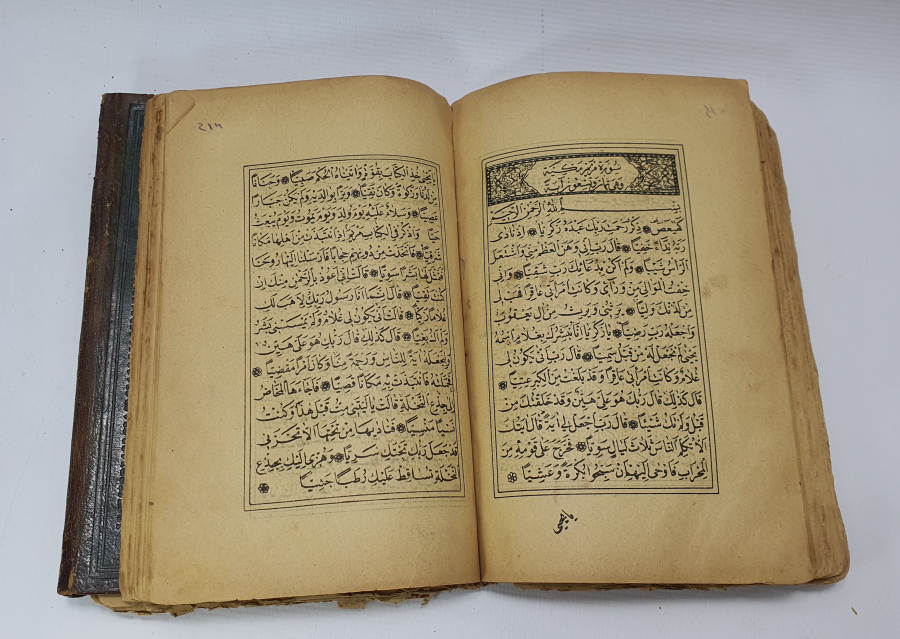 سُورَةُ مَرْيَمَ مَكِّيَّةٌ
وَهِيَ ثَمَانٌ وَتِسْعُونَ آيَةً
بِسْمِ اللّٰهِ الرَّحْمٰنِ الرَّحِيمِ
كٓهٰيٰعٓصٓ ۞ ذِكْرُ رَحْمَتِ رَبِّكَ عَبْدَهُ زَكَرِيَّا ۞ اِذْ نَادٰى
رَبَّهُ نِدَاءً خَفِيًّا ۞ قَالَ رَبِّ اِنِّى وَهَنَ الْعَظْمُ مِنِّى وَاشْتَعَلَ
الرَّاْسُ شَيْبًا ۞ وَلَمْ اَكُنْ بِدُعَائِكَ رَبِّ شَقِيًّا ۞ وَاِنِّى
خِفْتُ الْمَوَالِىَ مِنْ وَرَاءِى وَكَانَتِ امْرَاَتِى عَاقِرًا فَهَبْ لِى
مِنْ لَدُنْكَ وَلِيًّا ۞ يَرِثُنِى وَيَرِثُ مِنْ اٰلِ يَعْقُوبَ
وَاجْعَلْهُ رَبِّ رَضِيًّا ۞ يَا زَكَرِيَّا اِنَّا نُبَشِّرُكَ بِغُلَامٍ اسْمُهُ
يَحْيٰى لَمْ نَجْعَلْ لَهُ مِنْ قَبْلُ سَمِيًّا ۞ قَالَ رَبِّ اَنّٰى يَكُونُ لِى
غُلَامٌ وَكَانَتِ امْرَاَتِى عَاقِرًا وَقَدْ بَلَغْتُ مِنَ الْكِبَرِ عِتِيًّا ۞
قَالَ كَذٰلِكَ قَالَ رَبُّكَ هُوَ عَلَىَّ هَيِّنٌ وَقَدْ خَلَقْتُكَ مِنْ
قَبْلُ وَلَمْ تَكُ شَيْئًا ۞ قَالَ رَبِّ اجْعَلْ لِى اٰيَةً قَالَ اٰيَتُكَ
اَلَّا تُكَلِّمَ النَّاسَ ثَلَاثَ لَيَالٍ سَوِيًّا ۞ فَخَرَجَ عَلٰى قَوْمِهِ مِنَ
الْمِحْرَابِ فَاَوْحٰى اِلَيْهِمْ اَنْ سَبِّحُوا بُكْرَةً وَعَشِيًّا ۞
يا يحيى
يَا يَحْيٰى خُذِ الْكِتَابَ بِقُوَّةٍ وَاٰتَيْنَاهُ الْحُكْمَ صَبِيًّا ۞ وَحَنَانًا
مِنْ لَدُنَّا وَزَكٰوةً وَكَانَ تَقِيًّا ۞ وَبَرًّا بِوَالِدَيْهِ وَلَمْ يَكُنْ جَبَّارًا
عَصِيًّا ۞ وَسَلَامٌ عَلَيْهِ يَوْمَ وُلِدَ وَيَوْمَ يَمُوتُ وَيَوْمَ يُبْعَثُ
حَيًّا ۞ وَاذْكُرْ فِى الْكِتَابِ مَرْيَمَ اِذِ انْتَبَذَتْ مِنْ اَهْلِهَا مَكَانًا
شَرْقِيًّا ۞ فَاتَّخَذَتْ مِنْ دُونِهِمْ حِجَابًا فَاَرْسَلْنَا اِلَيْهَا رُوحَنَا
فَتَمَثَّلَ لَهَا بَشَرًا سَوِيًّا ۞ قَالَتْ اِنِّى اَعُوذُ بِالرَّحْمٰنِ مِنْكَ اِنْ
كُنْتَ تَقِيًّا ۞ قَالَ اِنَّمَا اَنَا رَسُولُ رَبِّكِ لِاَهَبَ لَكِ
غُلَامًا زَكِيًّا ۞ قَالَتْ اَنّٰى يَكُونُ لِى غُلَامٌ وَلَمْ يَمْسَسْنِى بَشَرٌ
وَلَمْ اَكُ بَغِيًّا ۞ قَالَ كَذٰلِكِ قَالَ رَبُّكِ هُوَ عَلَىَّ هَيِّنٌ
وَلِنَجْعَلَهُ اٰيَةً لِلنَّاسِ وَرَحْمَةً مِنَّا وَكَانَ اَمْرًا مَقْضِيًّا ۞
فَحَمَلَتْهُ فَانْتَبَذَتْ بِهِ مَكَانًا قَصِيًّا ۞ فَاَجَاءَهَا الْمَخَاضُ
اِلٰى جِذْعِ النَّخْلَةِ قَالَتْ يَا لَيْتَنِى مِتُّ قَبْلَ هٰذَا وَكُنْتُ
نَسْيًا مَنْسِيًّا ۞ فَنَادٰيهَا مِنْ تَحْتِهَا اَلَّا تَحْزَنِى
قَدْ جَعَلَ رَبُّكِ تَحْتَكِ سَرِيًّا ۞ وَهُزِّى اِلَيْكِ بِجِذْعِ
النَّخْلَةِ تُسَاقِطْ عَلَيْكِ رُطَبًا جَنِيًّا ۞